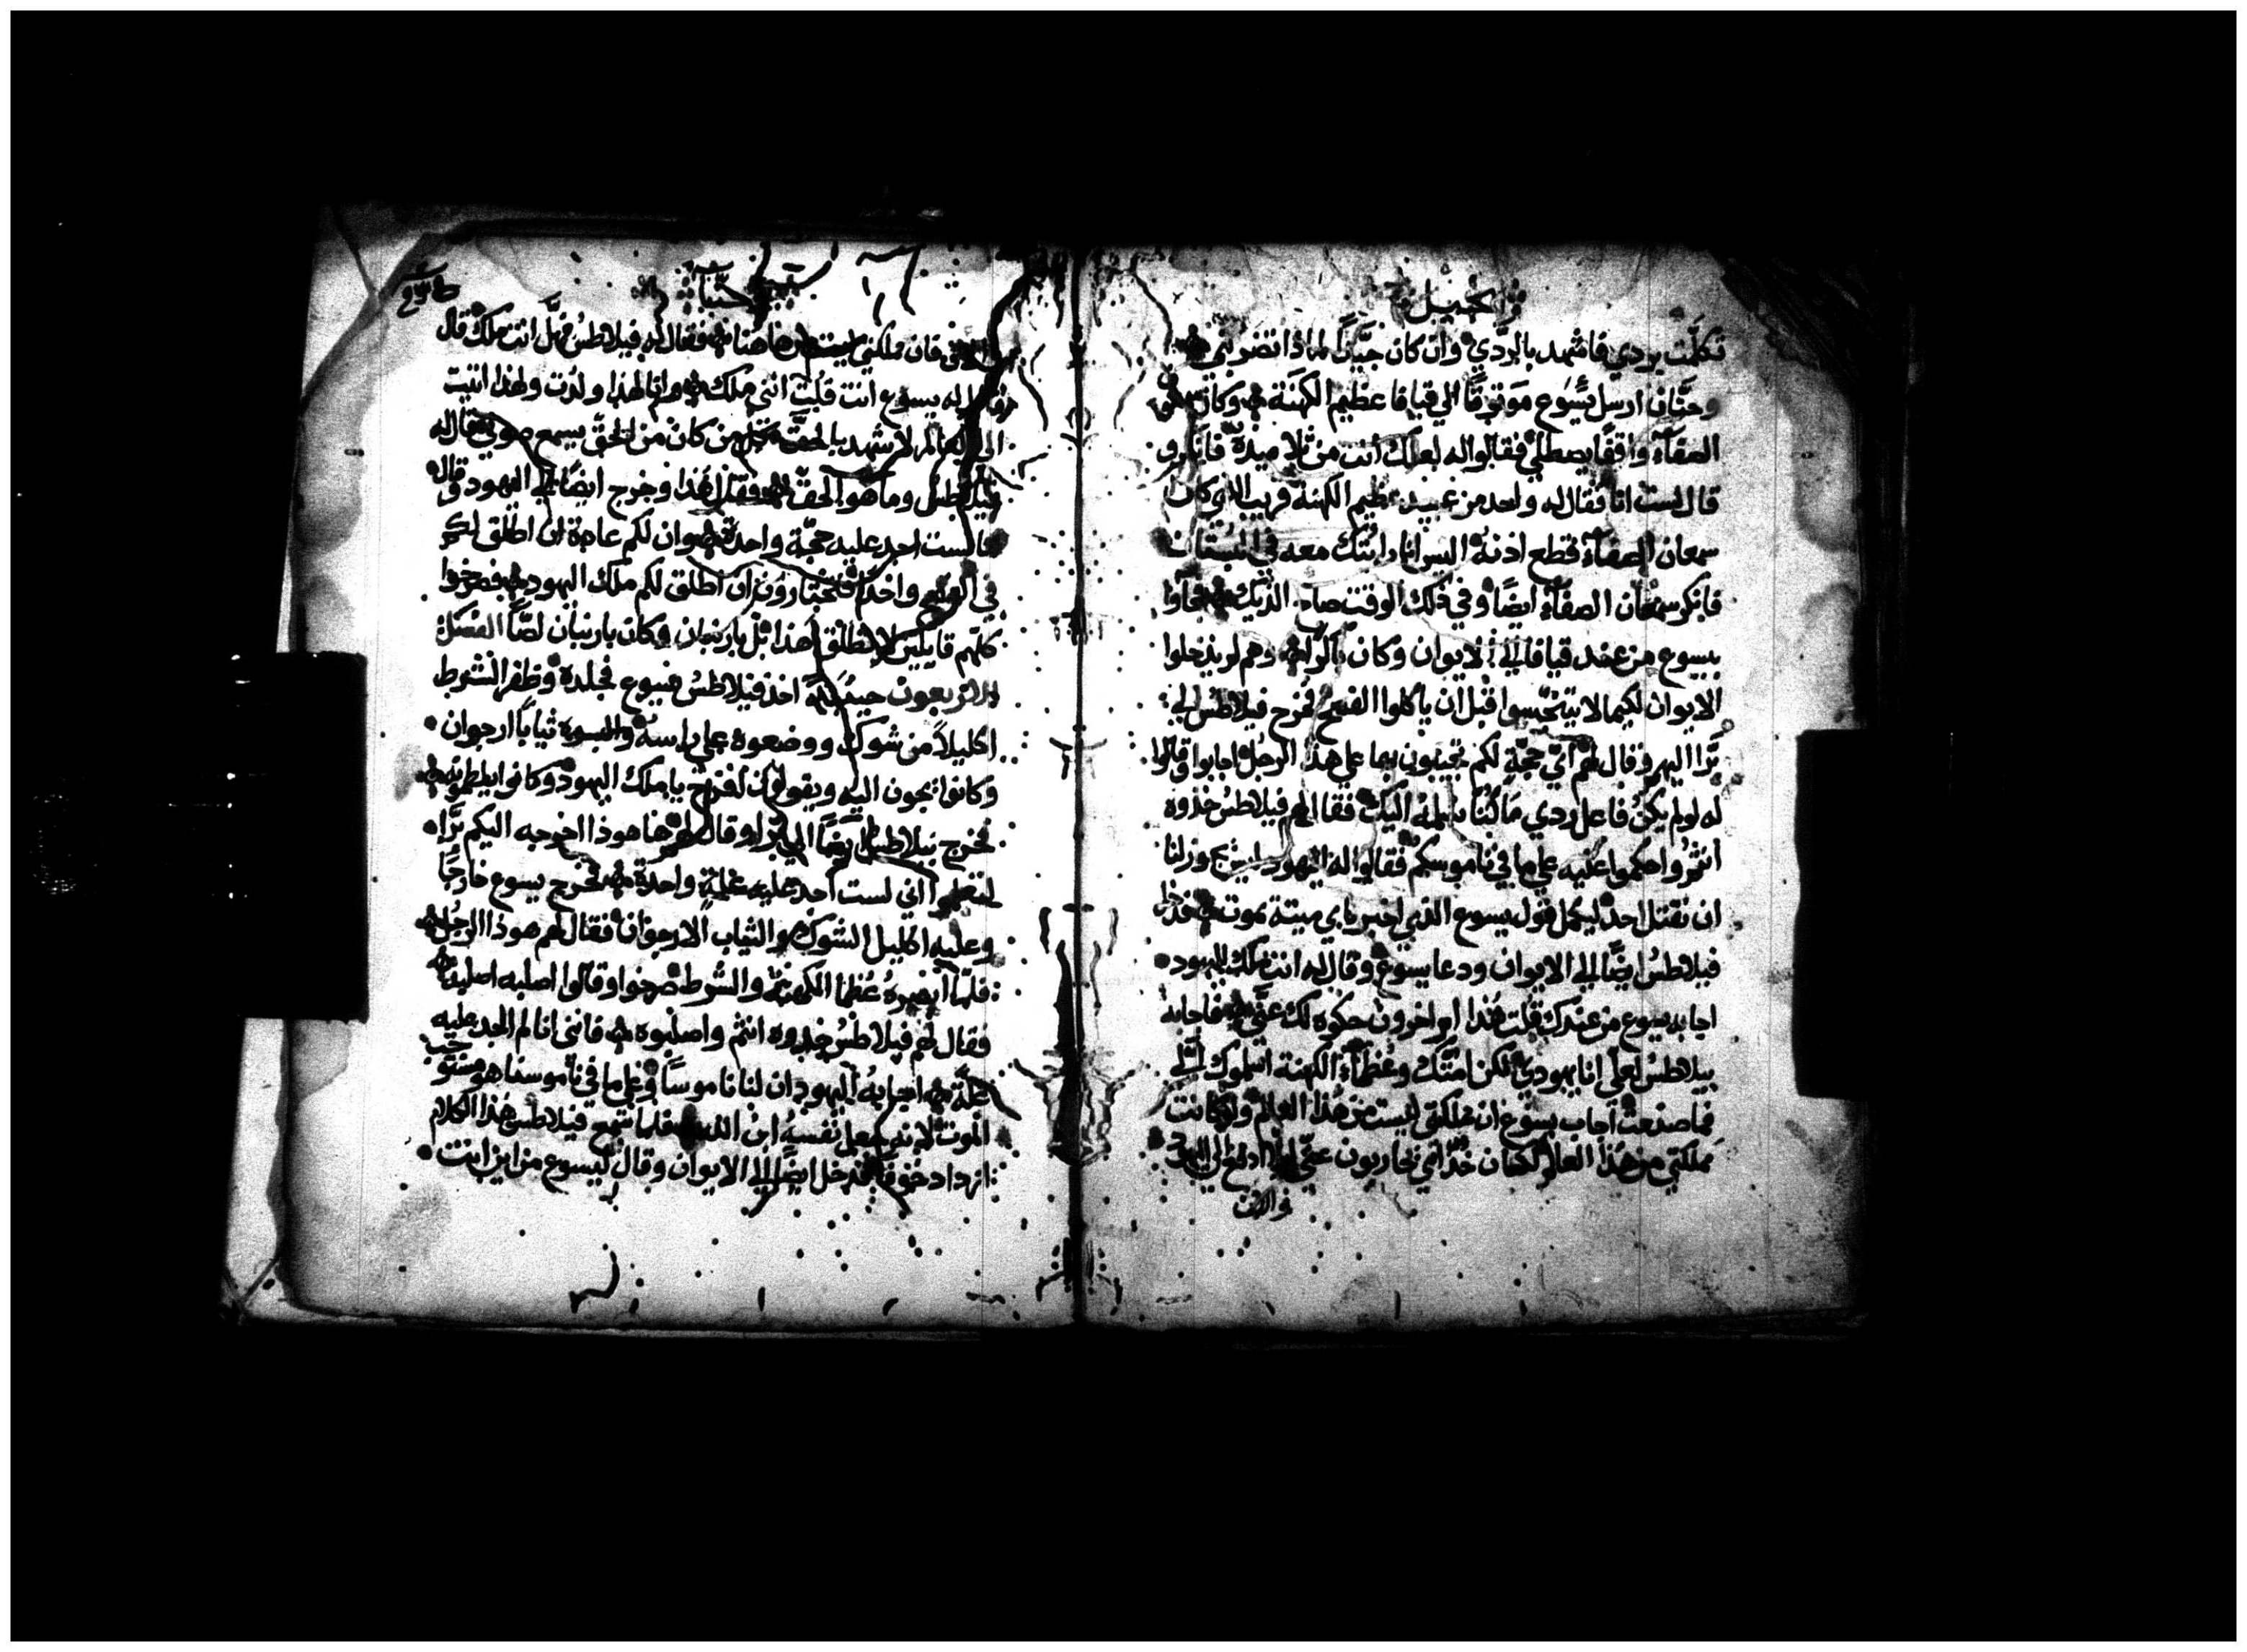 انجيل
تكلّمت بردي فاشهد بالردّي وان كان جيّدًا لماذا تضربني
وحنّان ارسل يسوع موثوقًا الي قيافا عظيم الكهنة وكان
الصفآء واقفًا يصطلي فقالوا له لعلك انت من تلاميذه فانكر و
قال لست انا فقال له واحد من عبيد عظيم الكهنة قريب الذي كان
سمعان الصفآء قطع اذنه اليس انا رايتك معه في البستان
فانكر سمعان الصفآء ايضًا وفي ذلك الوقت صاح الديك فجآوا
بيسوع من عند قيافا الي الايوان وكان باكرا وهم لم يدخلوا
الايوان لكيما لا يتنجّسوا قبل ان ياكلوا الفصح فخرج فيلاطس الي
برّا اليهم وقال لهم ايّ حجّة لكم تجيبون بها علي هذا الرجل اجابوا وقالوا
له لو لم يكن فاعل ردي ما كنّا نسلمه اليك فقال لهم فيلاطس خذوه
انتم واحكموا عليه علي ما في ناموسكم فقالوا له اليهود ليس يجوز لنا
ان نقتل احد ليكمل قول يسوع الذي اخبر باي ميتة يموت فدخل
فيلاطس ايضًا الي الايوان ودعا يسوع وقال له انت ملك اليهود
اجابه يسوع من عندك قلت هذا ام اخرون حكوه لك عنّي فاجابه
بيلاطس لعلّي انا يهودي لكن امّتك وعظمآء الكهنة اسلموك اليّ
فما صنعت اجاب يسوع ان مملكتي ليست من هذا العالم ولو كانت
مملكتي من هذا العالم لكان خدّامي يحاربون عنّي لئلا ادفع الي اليهود
والان
فان ملكتي ليست من هاهنا فقال له فيلاطس فهل انت ملك قال
له يسوع انت قلت انني ملك وانا لهذا ولدت ولهذا اتيت
الي العالم لاشهد بالحقّ كل من كان من الحقّ يسمع صوتي فقال له
فيلاطس وما هو الحقّ فقال هذا وخرج ايضًا الي اليهود وقال
ما لست اجد عليه حجّة واحدة وان لكم عادة ان اطلق لكم
في الفصح واحدًا فتختارون ان اطلق لكم ملك اليهود فصرخوا
كلّهم قايلين لا تطلق هذا بل باربنان وكان باربنان لصًّا
حينيذ اخذ فيلاطس يسوع فجلده وظفر الشرط
اكليلاً من شوك ووضعوه علي راسه والبسوه ثيابًا ارجوان
وكانوا يجون اليه ويقولون افرح يا ملك اليهود وكانوا يلطمونه
فخرج بيلاطس ايضًا الي برّا وقال لهم هاهوذا اخرجه اليكم برّا
لتعلموا اني لست اجد عليه علّة واحدة فخرج يسوع خارجًا
وعليه اكليل الشوك والثياب الارجوان فقال لهم هوذا الرجل
فلمّا ابصره عظمآ الكهنة والشرط صرخوا وقالوا اصلبه اصلبه
فقال لهم فيلاطس خذوه انتم واصلبوه فانني انا لم اجد عليه
علّة اجابه اليهود ان لنا ناموسًا وعلي ما في ناموسنا هو مستوجب
الموت لانه جعل نفسه ابن الله فلما سمع فيلاطس هذا الكلام
ازداد خوفًا فدخل ايضًا الي الايوان وقال ليسوع من اين انت